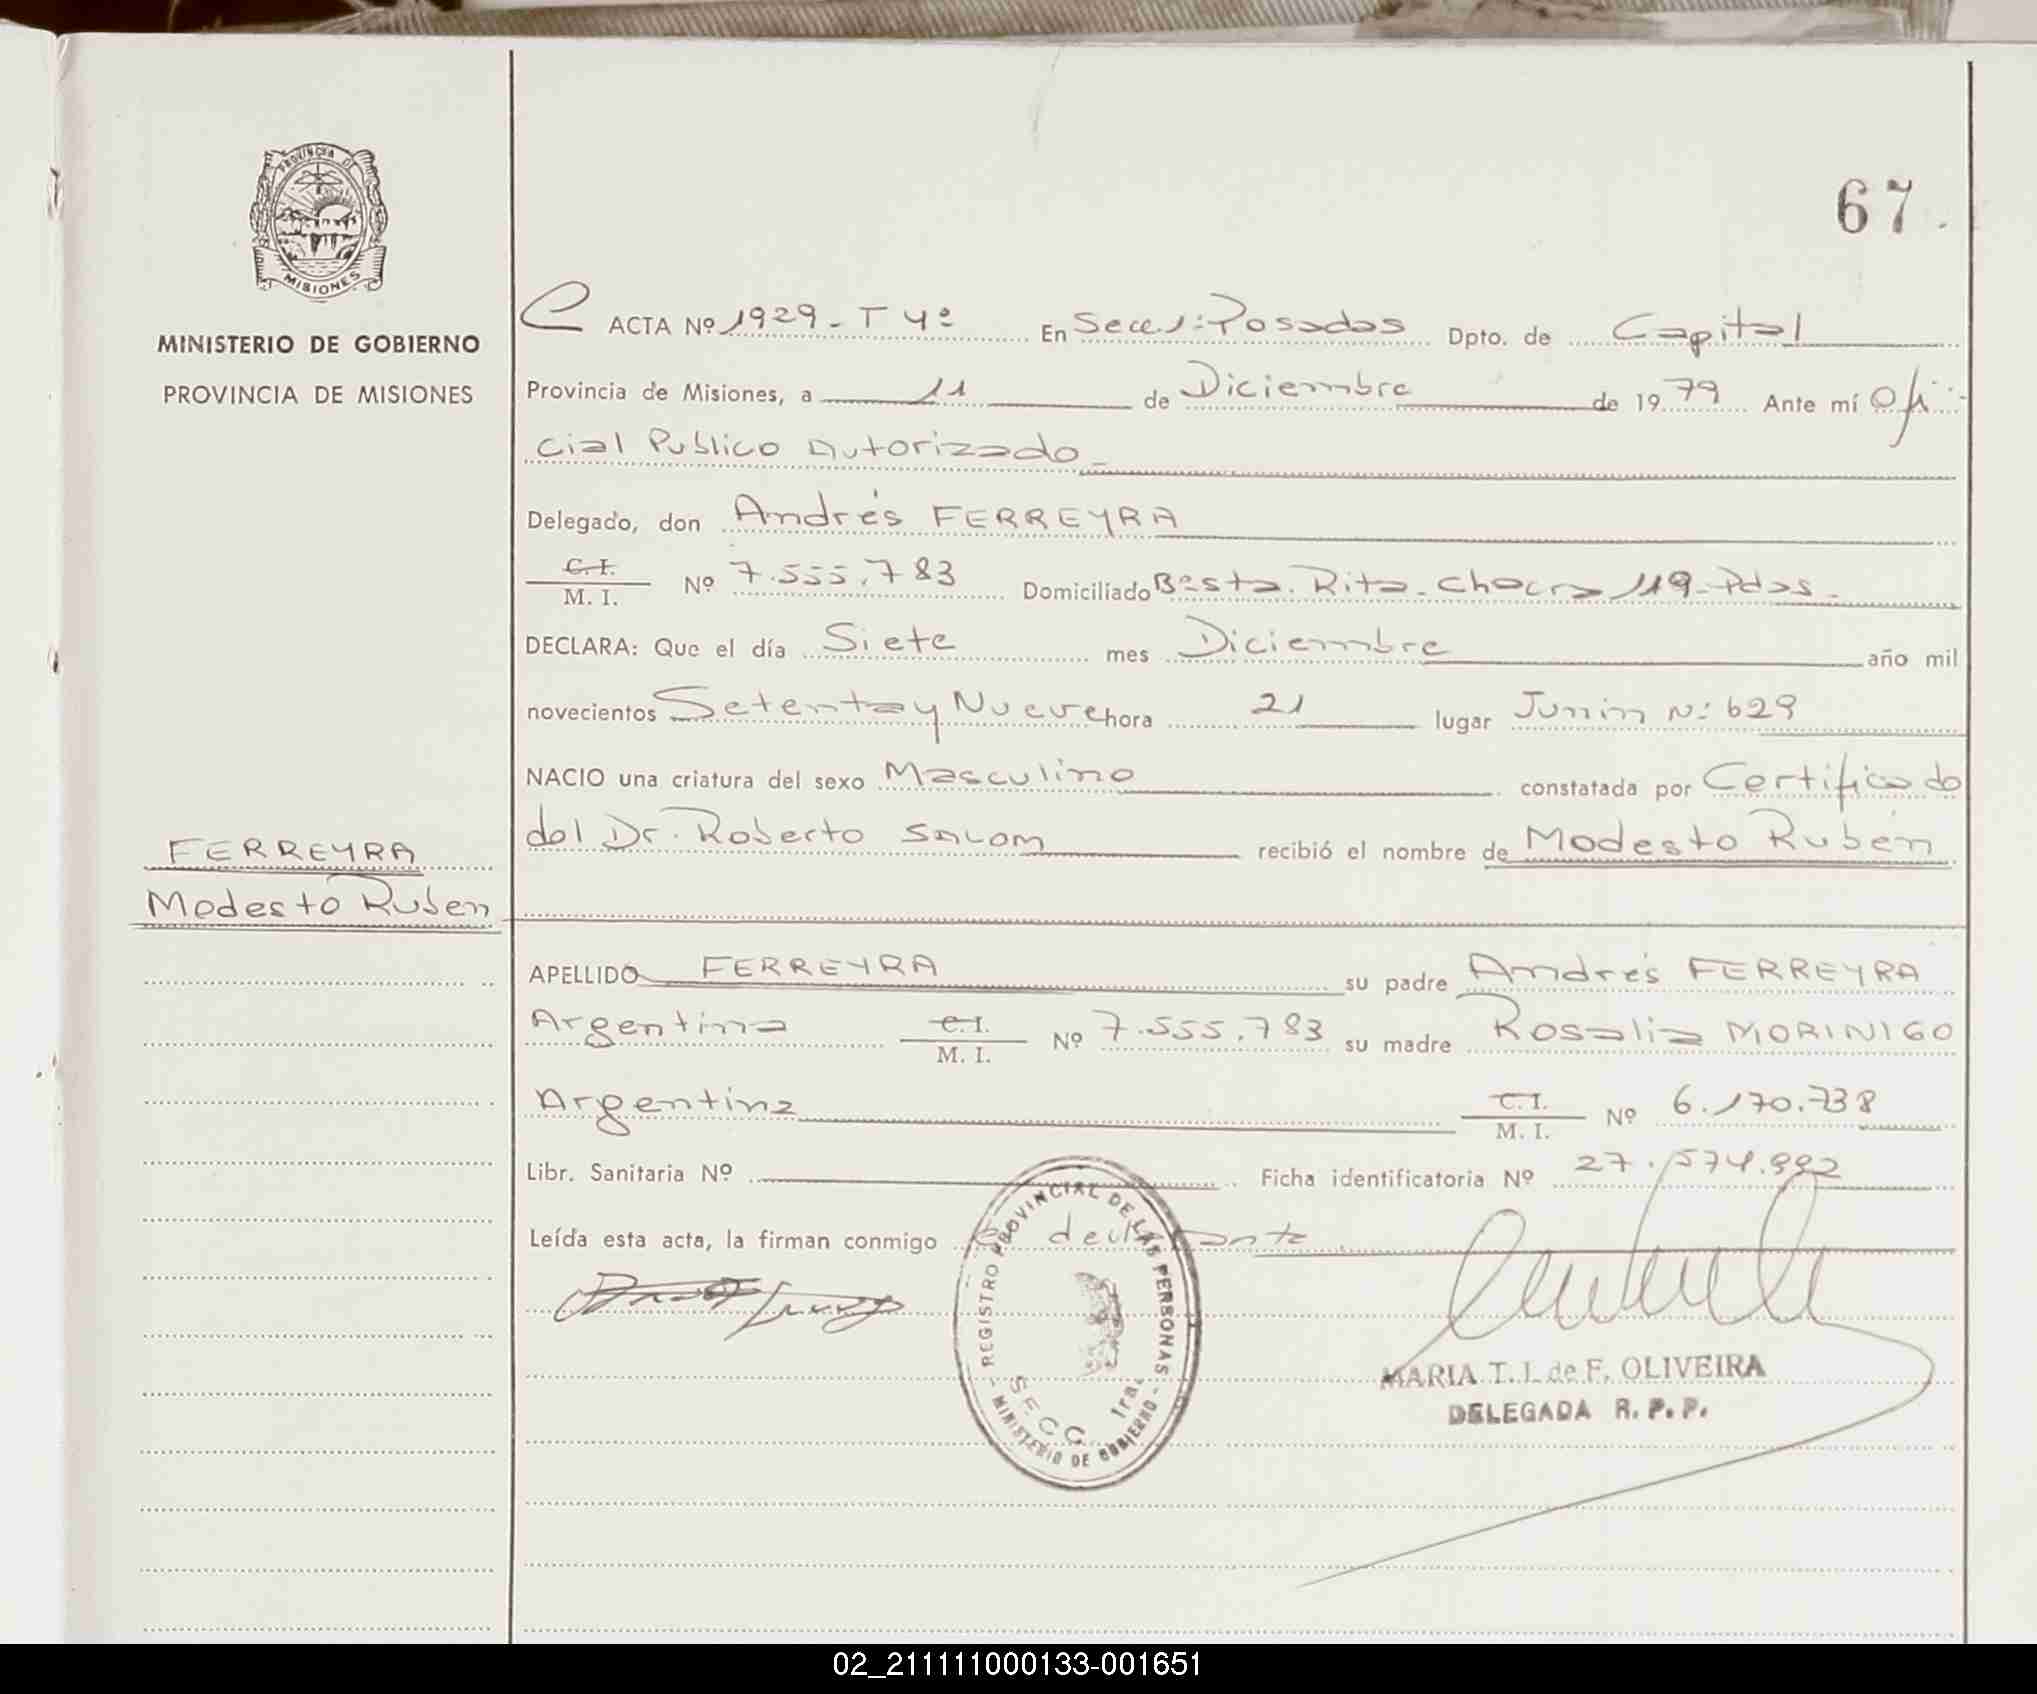 PROVINCIA DE
MISIONES
MINISTERIO DE GOBIERNO
PROVINCIA DE MISIONES
FERREYRA
Modesto Ruben
67.
ACTA Nº 1929 - T 4º En Secc 1: Posadas Dpto. de Capital
Provincia de Misiones, a 11 de Diciembre de 1979 Ante mí Ofi
cial Publico Autorizado -
Delegado, don Andrés FERREYRA
C. I.
M. I. Nº 7.555.783 Domiciliado Bº Sta. Rita - Chacra 119 - Pdas -
DECLARA: Que el día Siete mes Diciembre año mil
novecientos Setenta y Nueve hora 21 lugar Junin Nº 629
NACIO una criatura del sexo Masculino constatada por Certificado
del Dr. Roberto SALOM recibió el nombre de Modesto Rubén
APELLIDO FERREYRA su padre Andrés FERREYRA
Argentina C. I. M. I. Nº 7.555.783 su madre Rosalia MORINIGO
Argentina C. I. M. I. Nº 6.170.738
Libr. Sanitaria Nº Ficha identificatoria Nº 27.574.992
Leída esta acta, la firman conmigo el declarante
- REGISTRO PROVINCIAL DE LAS PERSONAS -
MINISTERIO DE GOBIERNO
SECC. 1ra.
MARIA T. I. de F. OLIVEIRA
DELEGADA R. P. P.
02_211111000133-001651